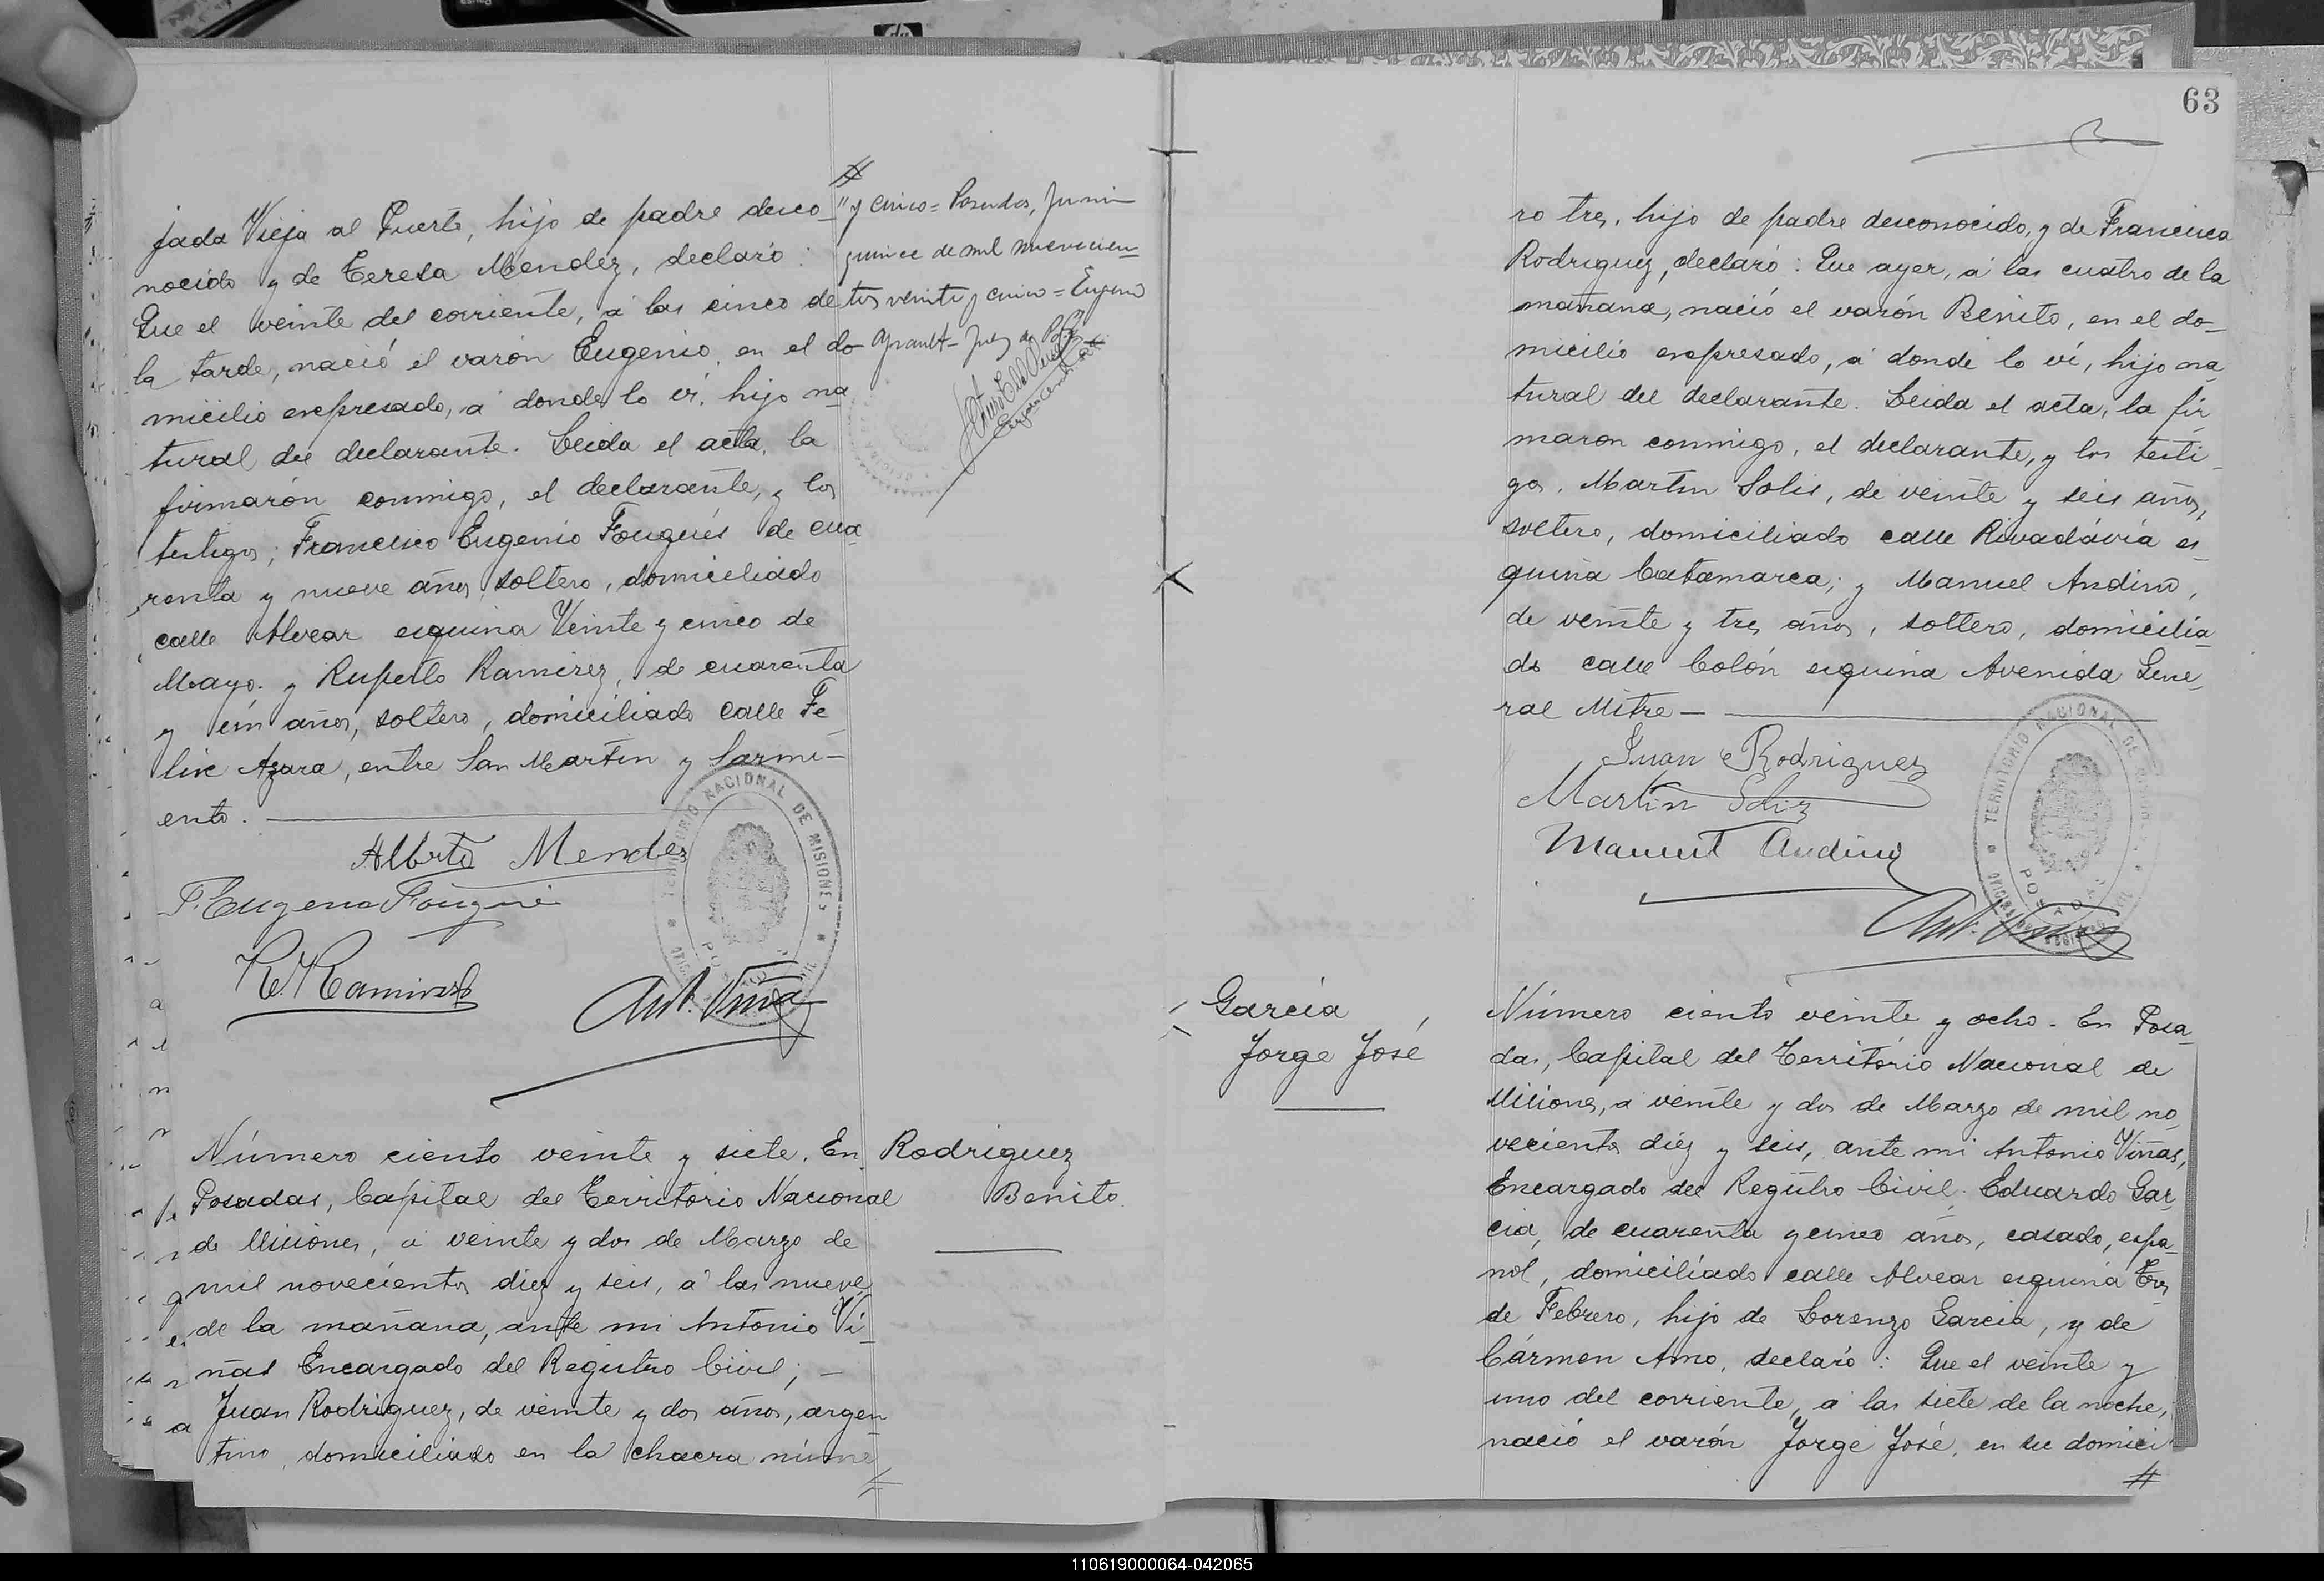 jada Vieja al Puerto, hijo de padre desco-
nocido y de Teresa Mendez, declaró:
Que el veinte del corriente, a las cinco de
la tarde, nació el varón Eugenio, en el do-
micilio expresado, a donde lo vi, hijo na-
tural del declarante. Leida el acta, la
firmarón conmigo, el declarante, y los
testigos; Francisco Eugenio Fouqués de cua-
renta y nueve años, soltero, domiciliado
calle Alvear esquina Veinte y cinco de
Mayo. y Ruperto Ramirez, de cuarenta
y un años, soltero, domiciliado calle Fe-
lix Azara, entre San Martin y Sarmi-
ento.
#
"y cinco = Posadas, Junio
quince de mil novecien-
tos veinte y cinco = Eugenio
Alberto Mendez
F. Eugenio Fouqué
R. Ramirez
Ant. Viña
TERRITORIO NACIONAL DE MISIONES
POSADAS
Número ciento veinte y siete. En
Posadas, Capital del Territorio Nacional
de Misiones, a veinte y dos de Marzo de
mil novecientos diez y seis, a las nueve
de la mañana, ante mi Antonio Vi-
ñas Encargado del Registro Civil; -
Juan Rodriguez, de veinte y dos años, argen-
tino, domiciliado en la chacra núme-
Rodriguez
Benito
63
ro tres, hijo de padre desconocido, y de Francisca
Rodriguez, declaró: Que ayer, a las cuatro de la
mañana, nació el varón Benito, en el do-
micilio expresado, a donde lo ví, hijo na-
tural del declarante. Leida el acta, la fir-
maron conmigo, el declarante, y los testi-
gos, Martin Solis, de veinte y seis años,
soltero, domiciliado calle Rivadávia es-
quina Catamarca; y Manuel Andino,
de veinte y tres años, soltero, domicilia-
do calle Colón esquina Avenida Gene-
ral Mitre-
Juan Rodriguez
Martin Soliz
Manuel Andino
Ant. Viñas
TERRITORIO NACIONAL DE MISIONES
POSADAS
Garcia
Jorge José
Número ciento veinte y ocho. En Posa-
das, Capital del Territorio Nacional de
Misiones, a veinte y dos de Marzo de mil no-
vecientos diez y seis, ante mi Antonio Viñas,
Encargado del Registro Civil; Eduardo Gar-
cia, de cuarenta y cinco años, casado, espa-
ñol, domiciliado calle Alvear esquina Tres
de Febrero, hijo de Lorenzo Garcia, y de
Cármen Amo, declaró: Que el veinte y
uno del corriente, a las siete de la noche,
nació el varón Jorge José, en su domici-
#
110619000064-042065